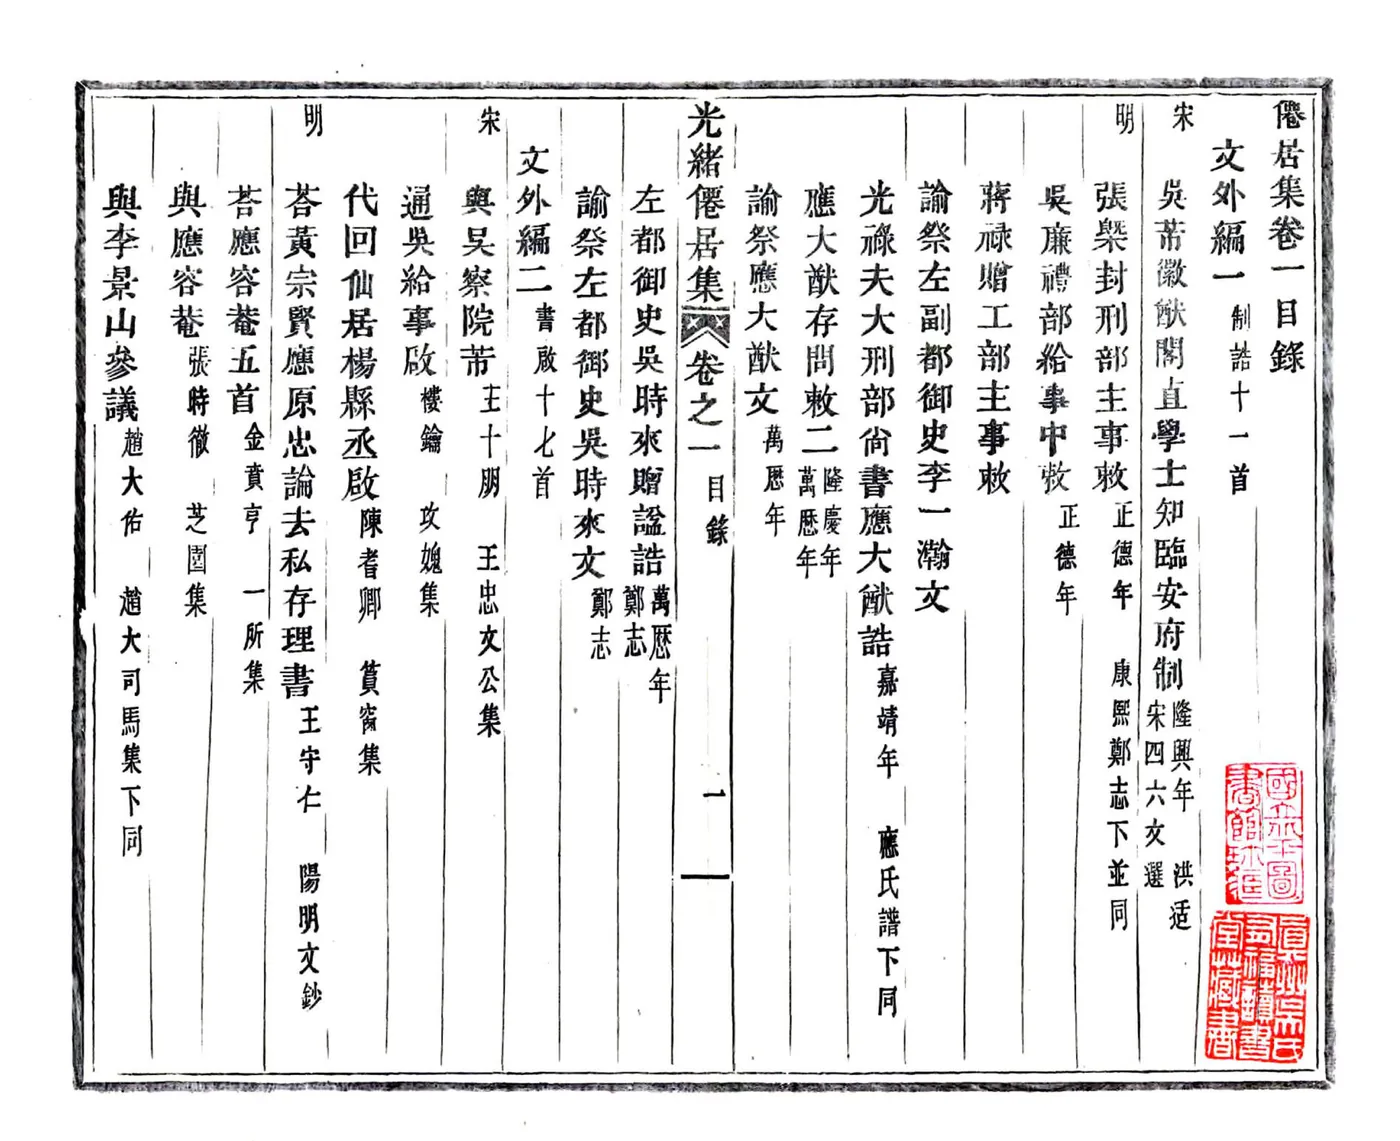 僊居集卷一目錄
文外編一 制誥十一首
宋 吳芾徽猷閣直學士知臨安府制 隆興年 洪适 宋四六文選
明 張㮣封刑部主事敕 正德年 康熙鄭志下並同
吳廉禮部給事中敕 正德年
蔣祿贈工部主事敕
諭祭左副都御史李一瀚文
光祿夫大刑部尙書應大猷誥 嘉靖年 應氏譜下同
應大猷存問敕二 隆慶年 萬歷年
諭祭應大猷文 萬歷年
光緒僊居集 卷之一 目錄 一
左都御史吳時來贈諡誥 萬歷年 鄭志
諭祭左都御史吳時來文 鄭志
文外編二 書啟十七首
宋 與吳察院芾 王十朋 王忠文公集
通吳給事啟 樓鑰 攻媿集
代回仙居楊縣丞啟 陳耆卿 篔窗集
明 荅黃宗賢應原忠論去私存理書 王守仁 陽明文鈔
荅應容菴五首 金賁亨 一所集
與應容菴 張時徹 芝園集
與李景山參議 趙大佑 趙大司馬集下同
國立北平圖書館珍藏
真州吳氏有福讀書堂藏書